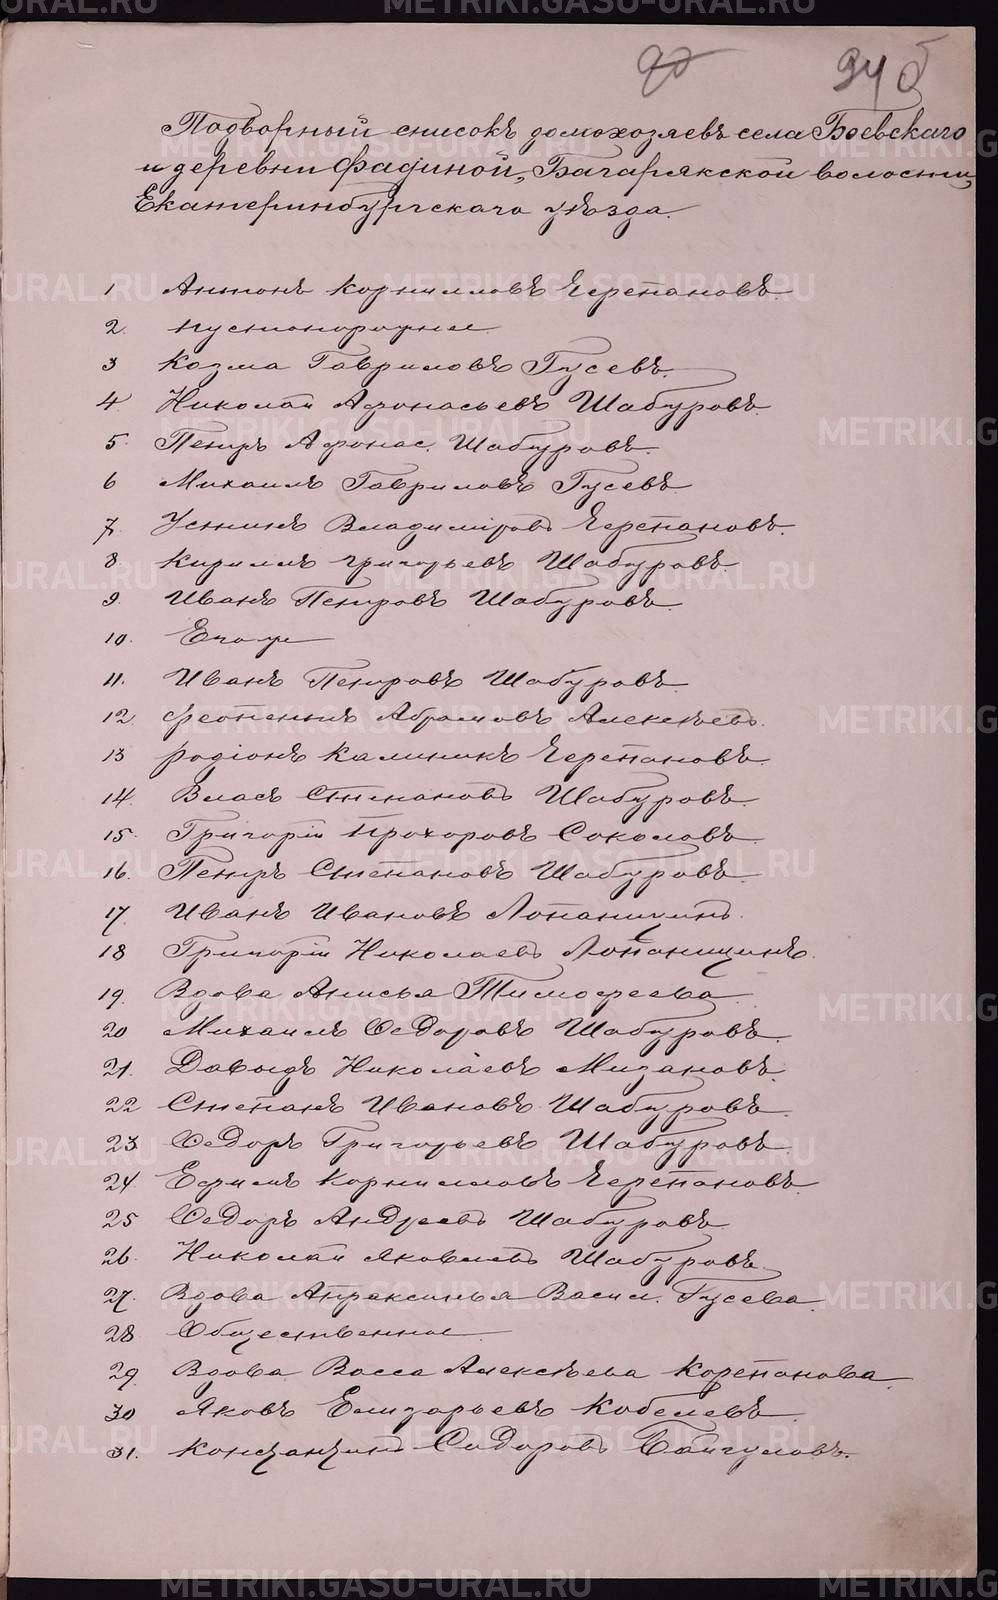 94 об
Подворный списокъ домохозяевъ села Боевскаго
и деревни Фадиной, Багарякской волости,
Екатеринбургскаго уѣзда.
1 Антонъ Корниловъ Черепановъ.
2. пустопорожнее
3 Козма Гавриловъ Гусевъ.
4 Николай Афонасьевъ Шабуровъ.
5. Петръ Афонас. Шабуровъ.
6 Михаилъ Гавриловъ Гусевъ
7. Устинъ Владиміровъ Черепановъ.
8. Кириллъ Григорьевъ Шабуровъ.
9. Иванъ Петровъ Шабуровъ.
10. Его же
11. Иванъ Петровъ Шабуровъ.
12. Феопентъ Абрамовъ Алексѣевъ.
13 Родіонъ Калининъ Черепановъ.
14. Власъ Степановъ Шабуровъ.
15. Григорій Прохоровъ Соколовъ.
16. Петръ Степановъ Шабуровъ.
17. Иванъ Ивановъ Лопатинъ.
18 Григорій Николаевъ
19. Вдова Анисья Тимофеева
20 Михаилъ Ѳедоровъ Шабуровъ.
21. Давыдъ Николаевъ Мизановъ.
22 Степанъ Ивановъ Шабуровъ.
23. Ѳедоръ Григорьевъ Шабуровъ.
24 Ефимъ Корниловъ Черепановъ.
25 Ѳедоръ Андреевъ Шабуровъ
26. Николай Яковлевъ Шабуровъ.
27. Вдова Апраксинья Васил. Гусева.
28 Общественное.
29. Вдова Васса Алексѣева Корепанова.
30 Яковъ Елизарьевъ Кобелевъ.
31. Константинъ Сидоровъ Байгуловъ.
METRIKI.GASO-URAL.RU